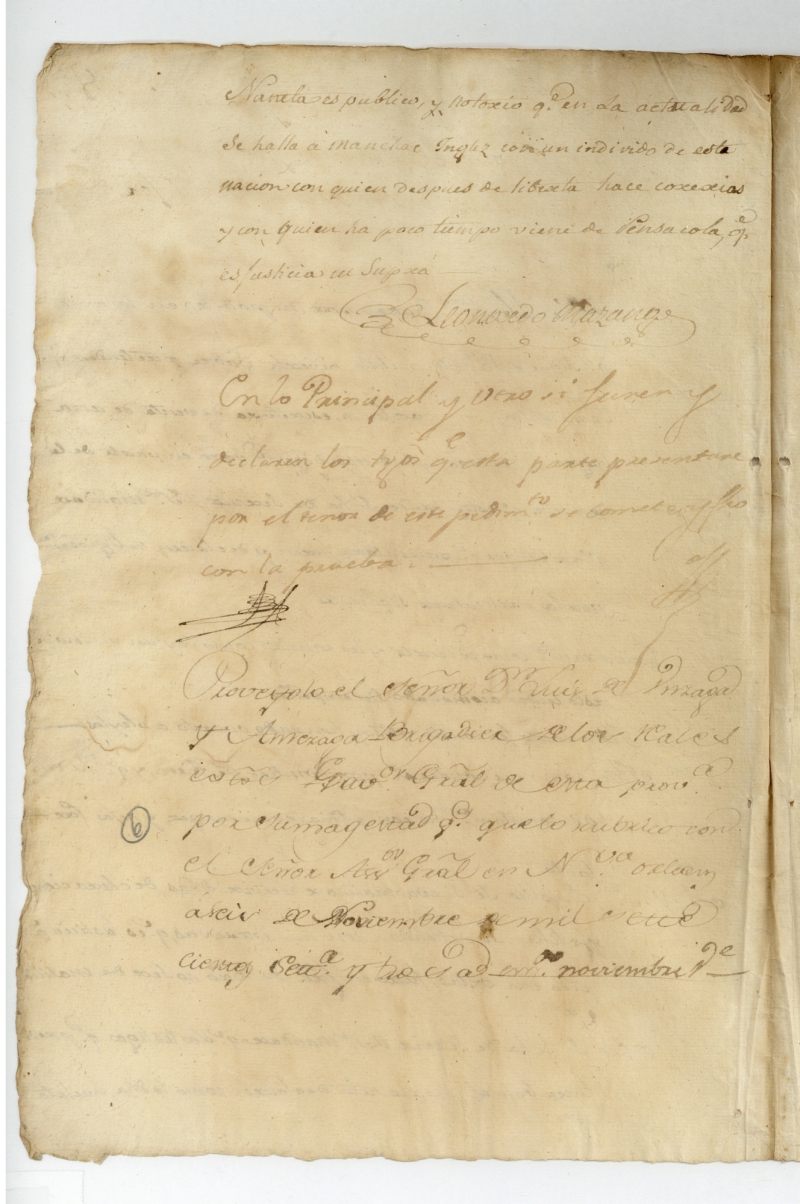 es publico, y notorio q.e en la actualidad
se halla a Manchac Inglz con un individo de esta
nacion con quien despues de liberta hace correrias
y con quien ha poco tiempo viene de Pensacola, q.e
es justicia ut supra
Leonardo Mazange
En lo Principal y otro si juren y
declaren los tgos q.e esta parte presentare
por el tenor de este pedim.to se comete y fho
con la prueba.
Proveyolo el Señor D.n Luis de Unzaga
y Amezaga Brigadier de los Reales
Gov.or Grãl de esta prov.a
por su magestad q.e que lo rubrico con
el Señor Ass.or Grãl en N.va orleans
a seis de Noviembre de mil sete
cientos sett.a y tres noviembre V.e
6